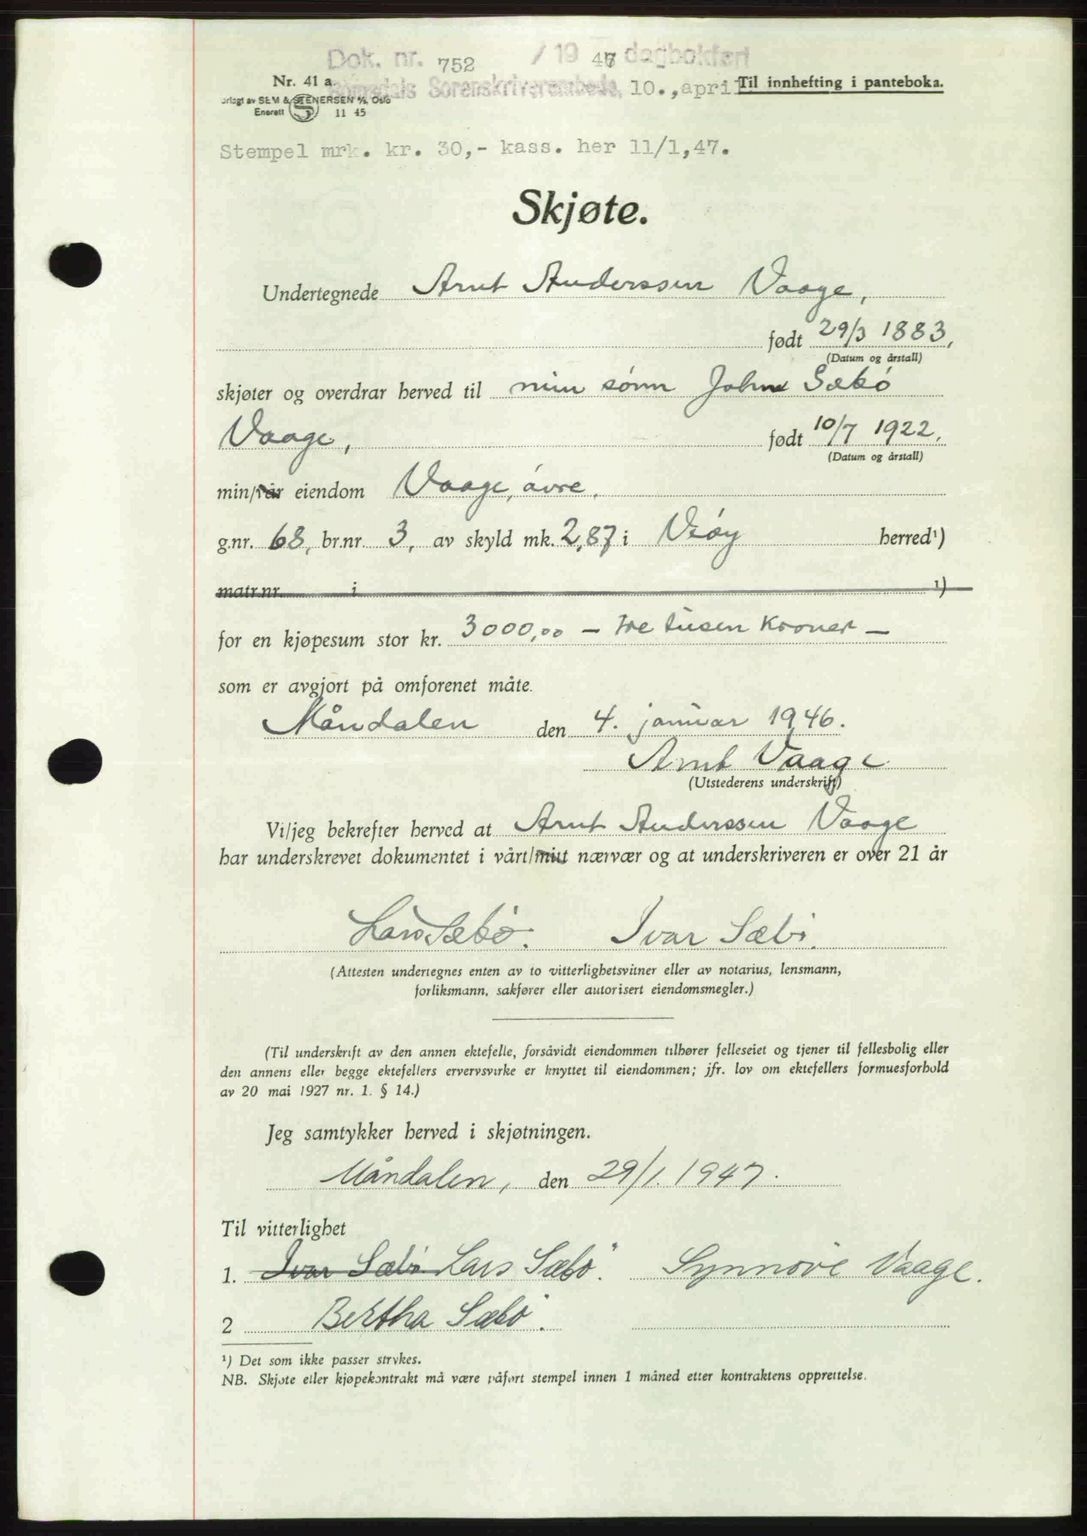 Dok. nr. 752 / 19 47 dagbokført
Nr. 41 a.
Romsdals Sorenskriverembede, 10., april Til innhefting i panteboka.
Forlagt av SEM & STENERSEN A/S, Oslo
Enerett S 11 45
Stempel mrk. kr. 30,- kass. her 11/1,47.
Skjøte.
Undertegnede Arnt Anderssen Vaage,
født 29/3 1883,
(Datum og årstall)
skjøter og overdrar herved til min sönn John Sæbö
Vaage, født 10/7 1922.
(Datum og årstall)
min/vår eiendom Vaage, övre.
g.nr. 68, br.nr 3, av skyld mk. 2,87 i Vöy herred¹)
matr.nr. i ¹)
for en kjøpesum stor kr. 3000,00 — tre tusen kroner —
som er avgjort på omforenet måte.
Måndalen den 4. januar 1946.
Arnt Vaage
(Utstederens underskrift)
Vi/jeg bekrefter herved at Arnt Anderssen Vaage
har underskrevet dokumentet i vårt/mitt nærvær og at underskriveren er over 21 år
Lars Sæbö. Ivar Sæbö.
(Attesten undertegnes enten av to vitterlighetsvitner eller av notarius, lensmann,
forliksmann, sakfører eller autorisert eiendomsmegler.)
(Til underskrift av den annen ektefelle, forsåvidt eiendommen tilhører felleseiet og tjener til fellesbolig eller
den annens eller begge ektefellers ervervsvirke er knyttet til eiendommen; jfr. lov om ektefellers formuesforhold
av 20 mai 1927 nr. 1. § 14.)
Jeg samtykker herved i skjøtningen.
Måndalen, den 29/1. 1947.
Til vitterlighet
1. Ivar Sæbö Lars Sæbö. Synnöve Vaage.
2 Bertha Sæbö.
¹) Det som ikke passer strykes.
NB. Skjøte eller kjøpekontrakt må være påført stempel innen 1 måned etter kontraktens opprettelse.